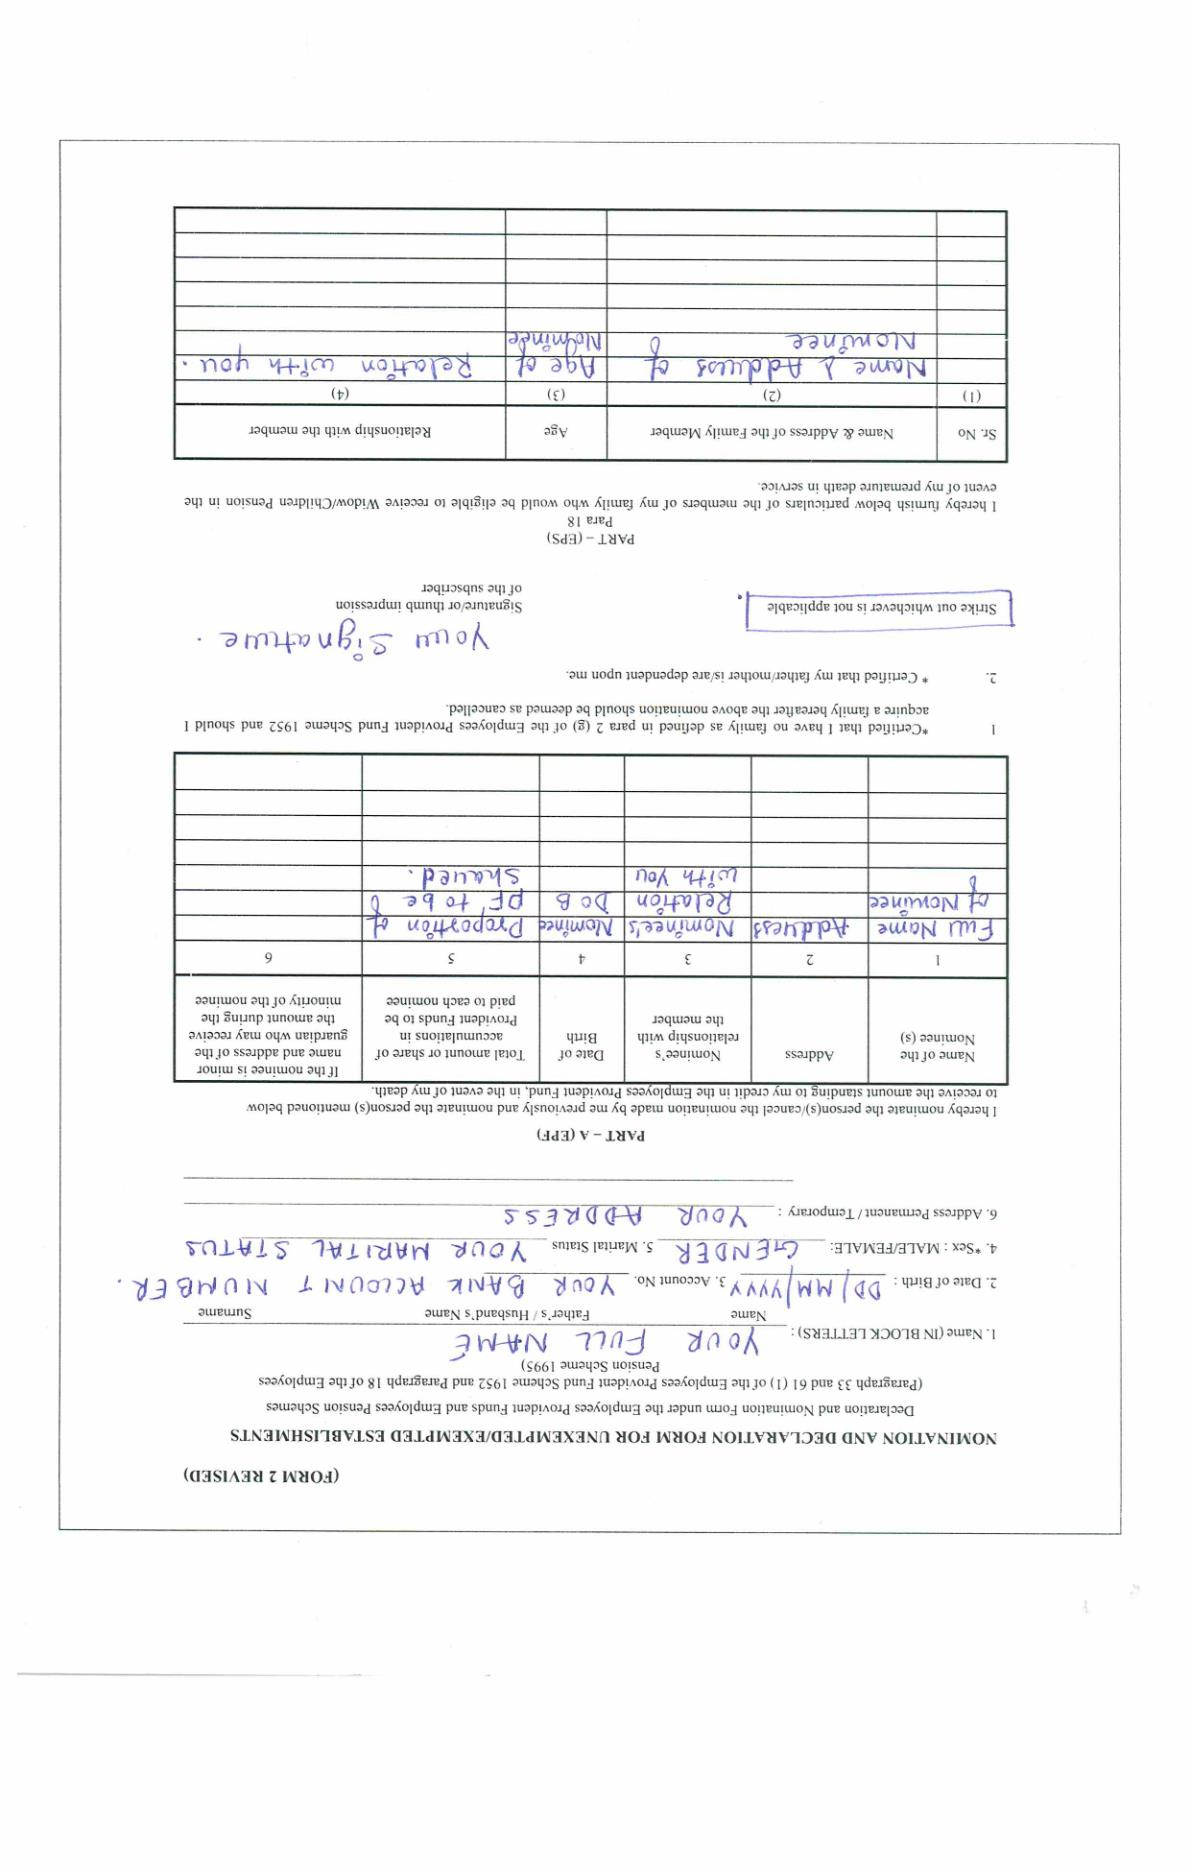 (FORM 2 REVISED)
NOMINATION AND DECLARATION FORM FOR UNEXEMPTED/EXEMPTED ESTABLISHMENTS
Declaration and Nomination Form under the Employees Provident Funds and Employees Pension Schemes
(Paragraph 33 and 61 (1) of the Employees Provident Fund Scheme 1952 and Paragraph 18 of the Employees
Pension Scheme 1995)
1. Name (IN BLOCK LETTERS) : YOUR FULL NAME
Name Father's / Husband's Name Surname
2. Date of Birth : DD/MM/YYYY 3. Account No. YOUR BANK ACCOUNT NUMBER.
4. *Sex : MALE/FEMALE: GENDER 5. Marital Status YOUR MARITAL STATUS
6. Address Permanent / Temporary : YOUR ADDRESS
PART – A (EPF)
I hereby nominate the person(s)/cancel the nomination made by me previously and nominate the person(s) mentioned below
to receive the amount standing to my credit in the Employees Provident Fund, in the event of my death.
Name of the
Nominee (s)
Address
Nominee's
relationship with
the member
Date of
Birth
Total amount or share of
accumulations in
Provident Funds to be
paid to each nominee
If the nominee is minor
name and address of the
guardian who may receive
the amount during the
minority of the nominee
1 2 3 4 5 6
Full Name Address Nominee's Nominee Proportion of
of Nominee Relation DOB PF to be
with You shared.
1 *Certified that I have no family as defined in para 2 (g) of the Employees Provident Fund Scheme 1952 and should I
acquire a family hereafter the above nomination should be deemed as cancelled.
2. * Certified that my father/mother is/are dependent upon me.
Your Signature.
Strike out whichever is not applicable
Signature/or thumb impression
of the subscriber
PART – (EPS)
Para 18
I hereby furnish below particulars of the members of my family who would be eligible to receive Widow/Children Pension in the
event of my premature death in service.
Sr. No Name & Address of the Family Member Age Relationship with the member
(1) (2) (3) (4)
Name & Address of Age of Relation with you.
Nominee Nominee